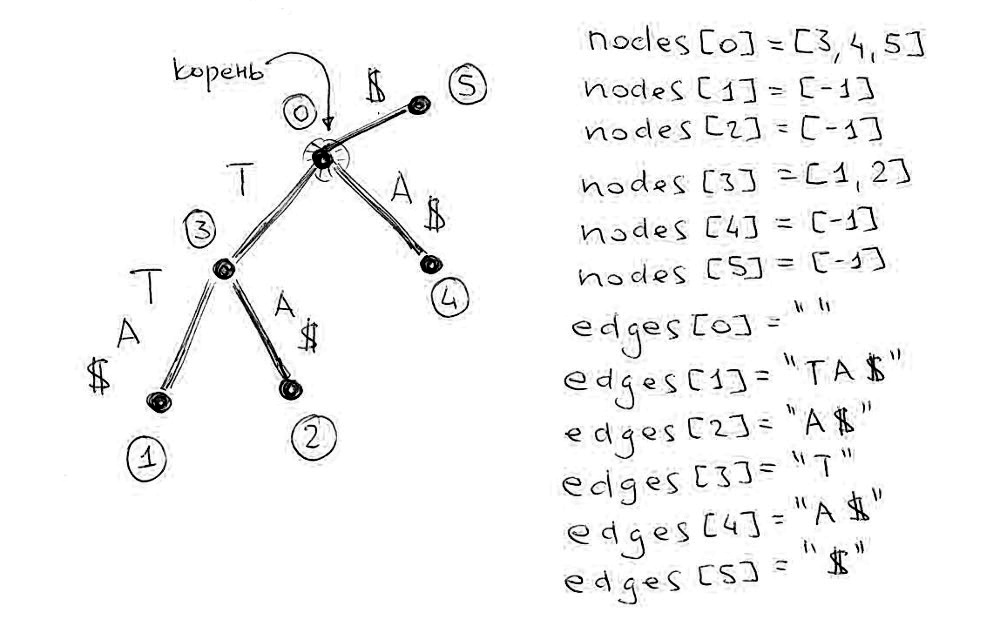 корень
0
$
5
T
A
$
3
4
T
A
$
A
$
1
2
nodes[0]=[3,4,5]
nodes[1]=[-1]
nodes[2]=[-1]
nodes[3]=[1,2]
nodes[4]=[-1]
nodes[5]=[-1]
edges[0]=" "
edges[1]="TA$"
edges[2]="A$"
edges[3]="T"
edges[4]="A$"
edges[5]="$"